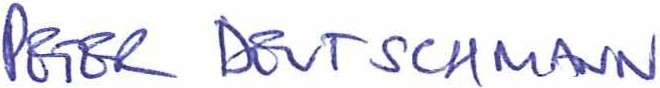 PETER DEUTSCHMANN